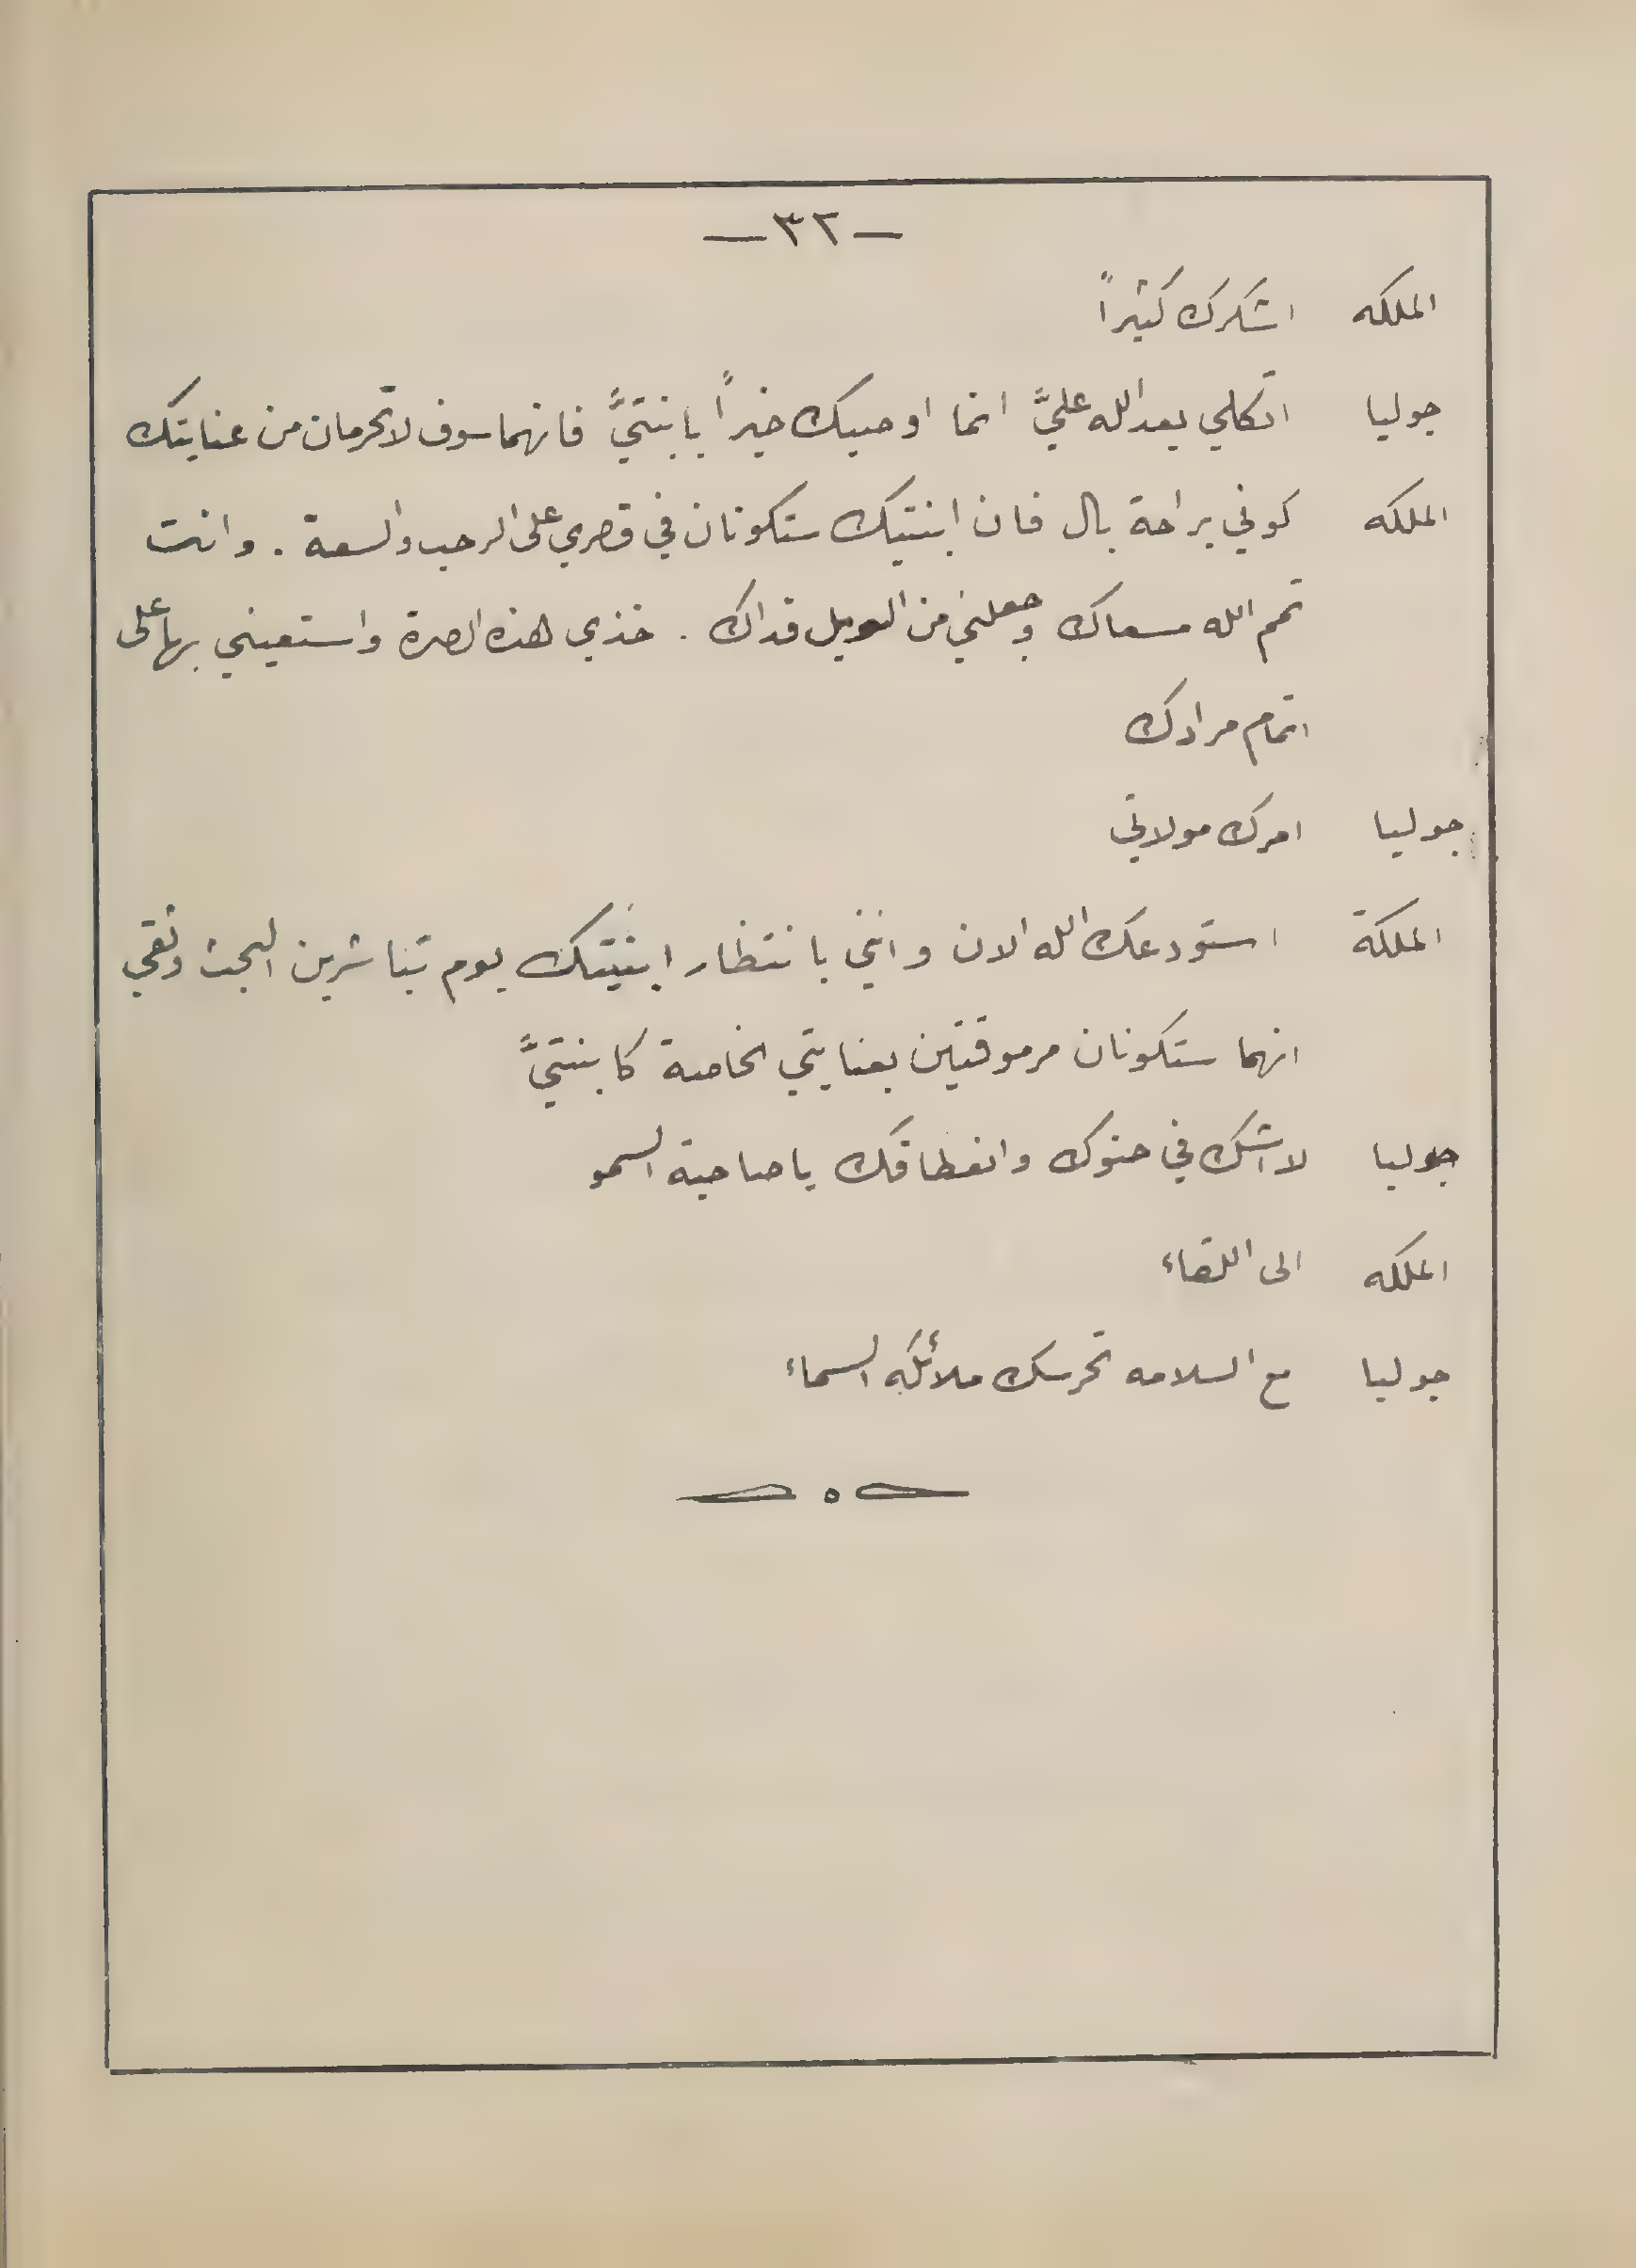 —٣٢—
الملكه اشكرك كثيراً
جوليا اتكلي بعد الله عليَّ انما اوصيك خيراً بابنتيَّ فانهما سوف لا تحرمان من عنايتك
الملكه كوني براحة بال فان ابنتيك ستكونان في قصري على الرحب والسعة . وانت
تمم الله مسعاك وجعلني من الويل فداك . خذي هذه الصرة واستعيني بها على
اتمام مرادك
جوليا امرك مولاتي
الملكة استودعك الله الان وانني بانتظار ابنتيك يوم تباشرين البحث وثقي
انهما ستكونان مرموقتين بعنايتي الخاصة كابنتيَّ
جوليا لا اشك في حنوك وانعطافك يا صاحبة السمو
الملكه الى اللقاء
جوليا مع السلامه تحرسك ملائكه السماء